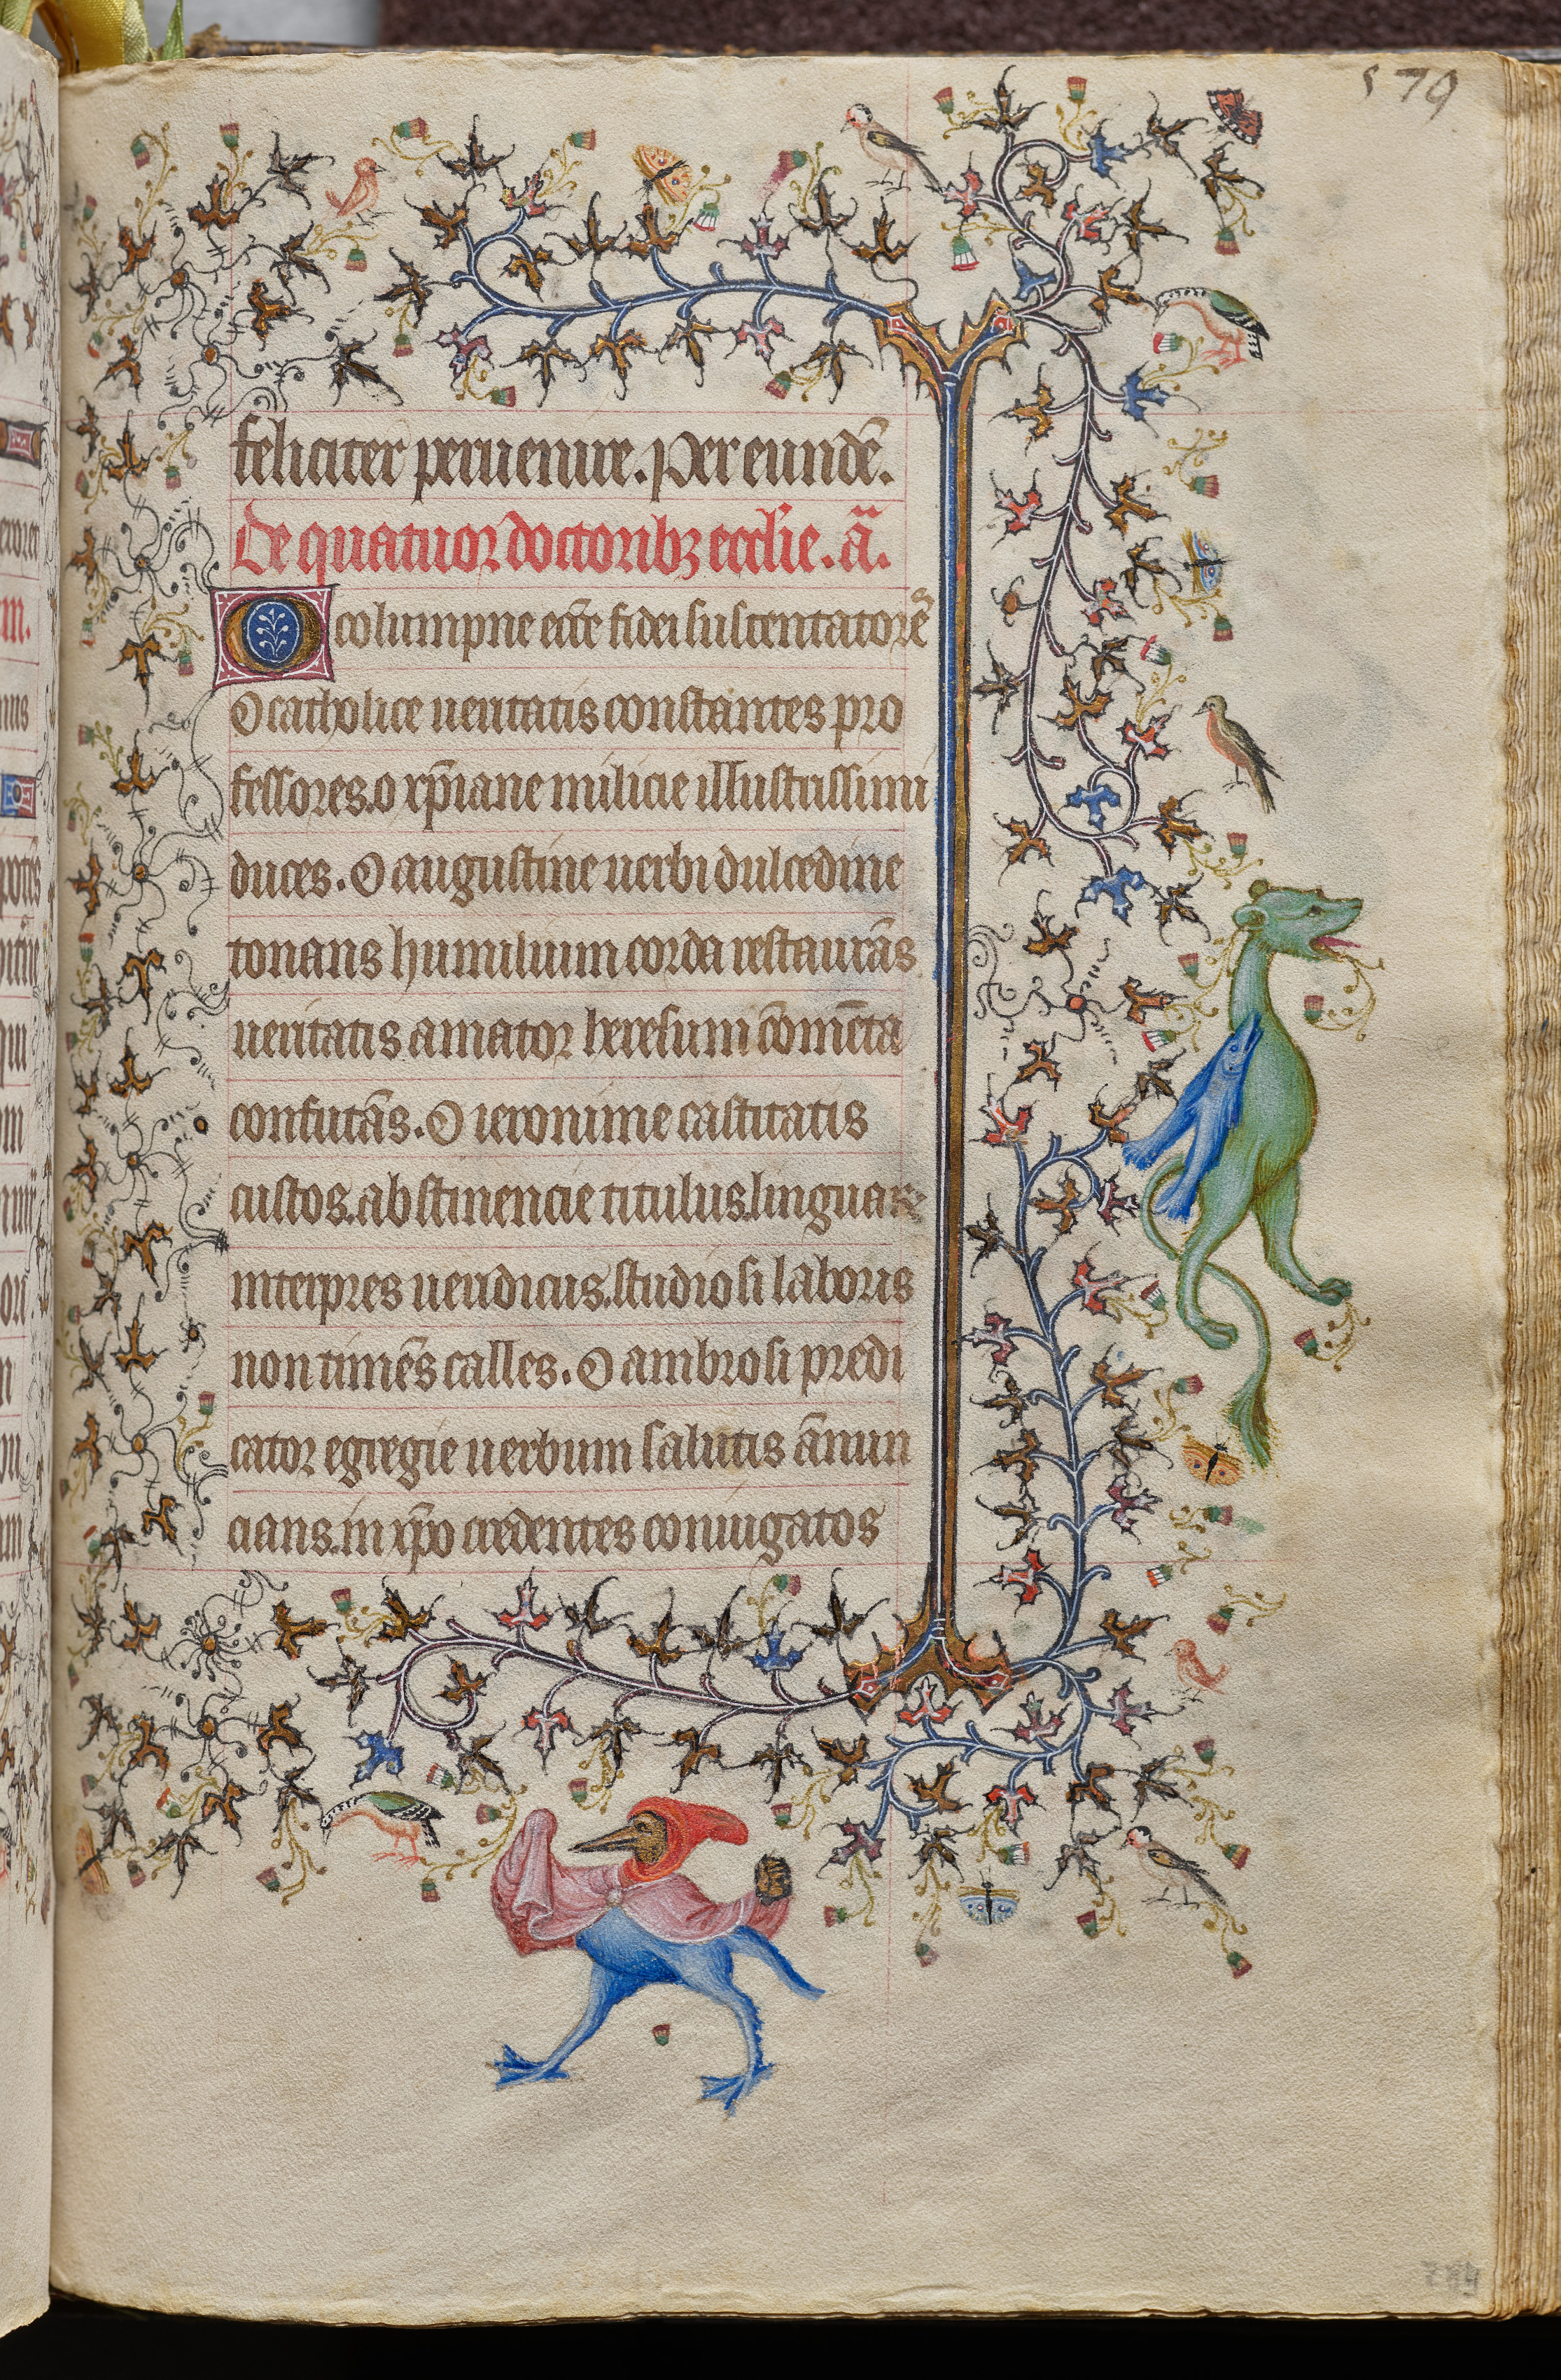 579
feliciter peruenire. Per eundē.
De quatuor doctoribꝫ ecclie. añ.
O columpne eccē fidei sustentatorē
O catholice ueritatis constantes pro
fessores. o xp̄iane milicie illustrissimi
duces. O augustine uerbi dulcedine
tonans humilium corda restaurās
ueritatis amator heresum cōmēta
confutās. O ieronime castitatis
custos. abstinencie titulus. linguarꝫ
interpres ueridicus. studiosi laboris
non timēs calles. O ambrosi predi
cator egregie uerbum salutis ānun
cians. in xp̄o credentes coniugatos
289